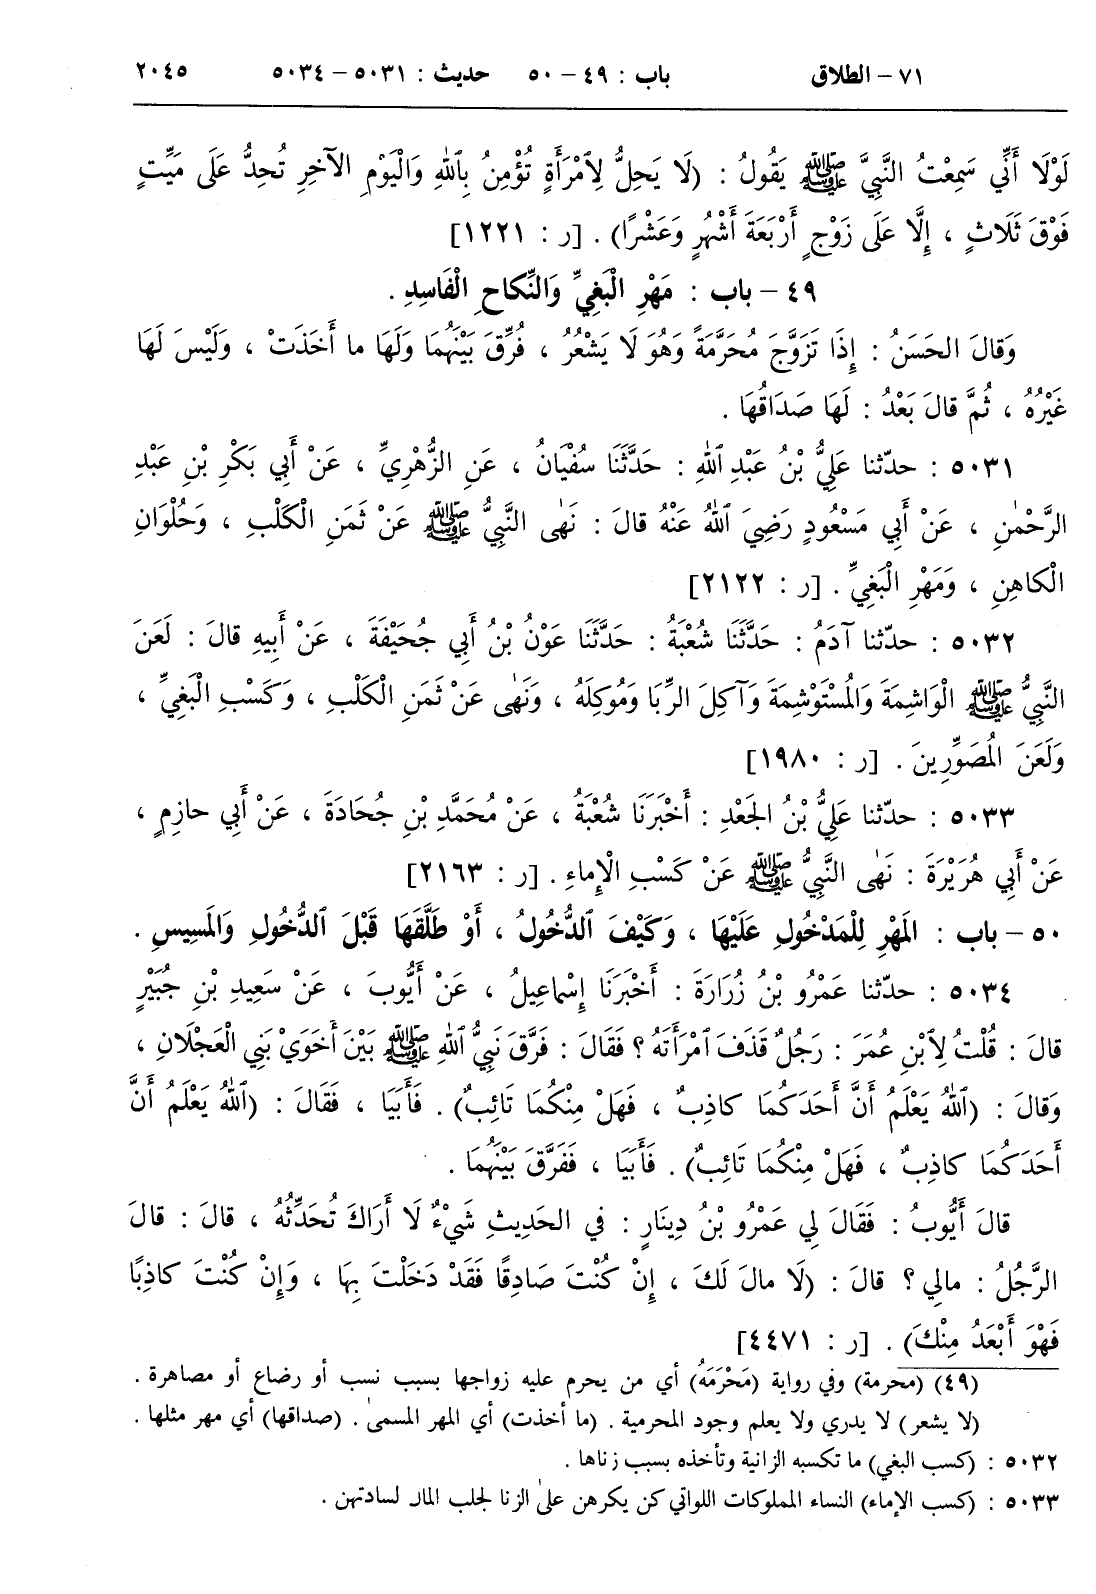 ٧١ – الطلاق باب : ٤٩ – ٥٠ حديث : ٥٠٣١ – ٥٠٣٤ ٢٠٤٥
لَوْلَا أَنِّي سَمِعْتُ النَّبِيَّ ﷺ يَقُولُ : (لَا يَحِلُّ لِٱمْرَأَةٍ تُؤْمِنُ بِٱللهِ وَالْيَوْمِ الآخِرِ تُحِدُّ عَلَى مَيِّتٍ
فَوْقَ ثَلَاثٍ ، إِلَّا عَلَى زَوْجٍ أَرْبَعَةَ أَشْهُرٍ وَعَشْرًا) . [ر : ١٢٢١]
٤٩ – باب : مَهْرِ الْبَغِيِّ وَالنِّكاحِ الْفَاسِدِ .
وَقالَ الحَسَنُ : إِذَا تَزَوَّجَ مُحَرَّمَةً وَهُوَ لَا يَشْعُرُ ، فُرِّقَ بَيْنَهُمَا وَلَهَا ما أَخَذَتْ ، وَلَيْسَ لَهَا
غَيْرُهُ ، ثُمَّ قالَ بَعْدُ : لَهَا صَدَاقُهَا .
٥٠٣١ : حدّثنا عَلِيُّ بْنُ عَبْدِ ٱللهِ : حَدَّثَنَا سُفْيَانُ ، عَنِ الزُّهْرِيِّ ، عَنْ أَبِي بَكْرِ بْنِ عَبْدِ
الرَّحْمٰنِ ، عَنْ أَبِي مَسْعُودٍ رَضِيَ ٱللهُ عَنْهُ قالَ : نَهٰى النَّبِيُّ ﷺ عَنْ ثَمَنِ الْكَلْبِ ، وَحُلْوَانِ
الْكاهِنِ ، وَمَهْرِ الْبَغِيِّ . [ر : ٢١٢٢]
٥٠٣٢ : حدّثنا آدَمُ : حَدَّثَنَا شُعْبَةُ : حَدَّثَنَا عَوْنُ بْنُ أَبِي جُحَيْفَةَ ، عَنْ أَبِيهِ قالَ : لَعَنَ
النَّبِيُّ ﷺ الْوَاشِمَةَ وَالمُسْتَوْشِمَةَ وَآكِلَ الرِّبَا وَمُوكِلَهُ ، وَنَهٰى عَنْ ثَمَنِ الْكَلْبِ ، وَكَسْبِ الْبَغِيِّ ،
وَلَعَنَ المُصَوِّرِينَ . [ر : ١٩٨٠]
٥٠٣٣ : حدّثنا عَلِيُّ بْنُ الجَعْدِ : أَخْبَرَنَا شُعْبَةُ ، عَنْ مُحَمَّدِ بْنِ جُحَادَةَ ، عَنْ أَبِي حازِمٍ ،
عَنْ أَبِي هُرَيْرَةَ : نَهٰى النَّبِيُّ ﷺ عَنْ كَسْبِ الْإِماءِ . [ر : ٢١٦٣]
٥٠ – باب : المَهْرِ لِلْمَدْخُولِ عَلَيْهَا ، وَكَيْفَ ٱلدُّخُولُ ، أَوْ طَلَّقَهَا قَبْلَ ٱلدُّخُولِ وَالمَسِيسِ .
٥٠٣٤ : حدّثنا عَمْرُو بْنُ زُرَارَةَ : أَخْبَرَنَا إِسْمَاعِيلُ ، عَنْ أَيُّوبَ ، عَنْ سَعِيدِ بْنِ جُبَيْرٍ
قالَ : قُلْتُ لِٱبْنِ عُمَرَ : رَجُلٌ قَذَفَ ٱمْرَأَتَهُ ؟ فَقَالَ : فَرَّقَ نَبِيُّ ٱللهِ ﷺ بَيْنَ أَخَوَيْ بَنِي الْعَجْلَانِ ،
وَقالَ : (ٱللهُ يَعْلَمُ أَنَّ أَحَدَكُمَا كاذِبٌ ، فَهَلْ مِنْكُمَا تَائِبٌ) . فَأَبَيَا ، فَقَالَ : (ٱللهُ يَعْلَمُ أَنَّ
أَحَدَكُمَا كاذِبٌ ، فَهَلْ مِنْكُمَا تَائِبٌ) . فَأَبَيَا ، فَفَرَّقَ بَيْنَهُمَا .
قالَ أَيُّوبُ : فَقَالَ لِي عَمْرُو بْنُ دِينَارٍ : في الحَدِيثِ شَيْءٌ لَا أَرَاكَ تُحَدِّثُهُ ، قالَ : قالَ
الرَّجُلُ : مالِي ؟ قالَ : (لَا مالَ لَكَ ، إِنْ كُنْتَ صَادِقًا فَقَدْ دَخَلْتَ بِهَا ، وَإِنْ كُنْتَ كاذِبًا
فَهْوَ أَبْعَدُ مِنْكَ) . [ر : ٤٤٧١]
(٤٩) (محرمة) وفي رواية (مَحْرَمَهُ) أي من يحرم عليه زواجها بسبب نسب أو رضاع أو مصاهرة .
(لا يشعر) لا يدري ولا يعلم وجود المحرمية . (ما أخذت) أي المهر المسمىٰ . (صداقها) أي مهر مثلها .
٥٠٣٢ : (كسب البغي) ما تكسبه الزانية وتأخذه بسبب زناها .
٥٠٣٣ : (كسب الإماء) النساء المملوكات اللواتي كن يكرهن علىٰ الزنا لجلب المال لسادتهن .